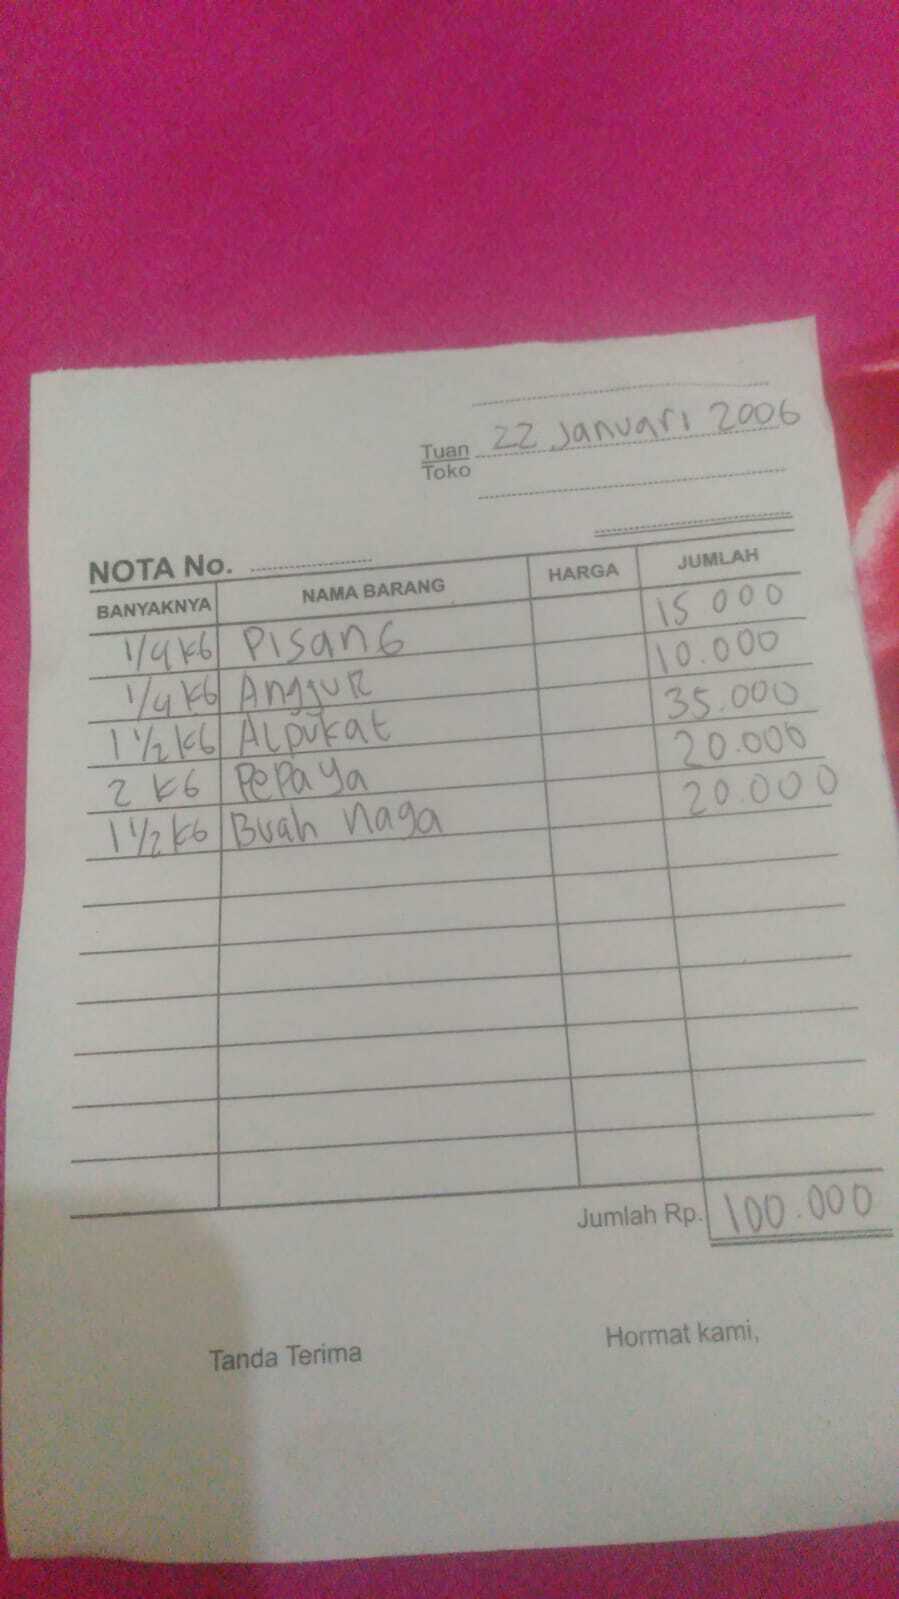 22 Januari 2006
Tuan
Toko
NOTA No.
BANYAKNYA NAMA BARANG HARGA JUMLAH
1/4 KG PISANG 15 000
1/4 KG Anggur 10.000
1 1/2 KG Alpukat 35.000
2 KG PePaya 20.000
1 1/2 KG Buah naga 20.000
Jumlah Rp. 100.000
Tanda Terima Hormat kami,